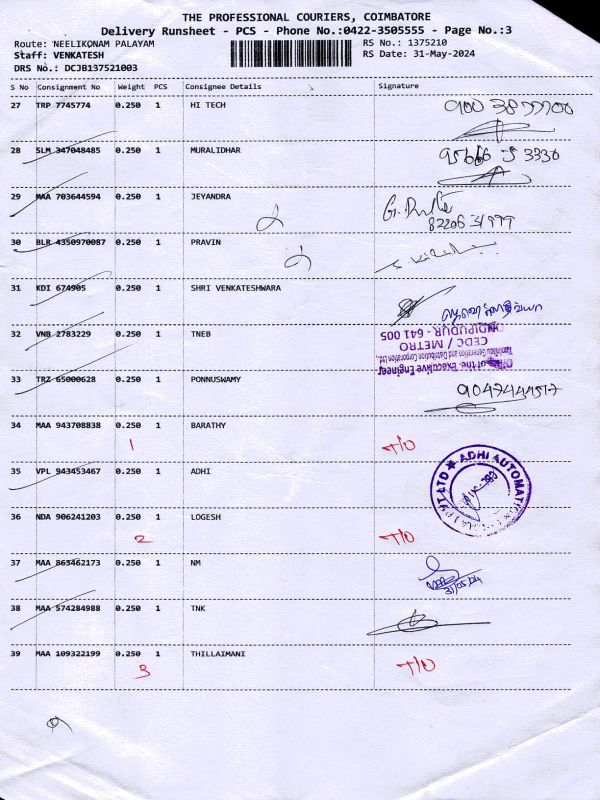 THE PROFESSIONAL COURIERS, COIMBATORE
Delivery Runsheet - PCS - Phone No.:0422-3505555 - Page No.:3
Route: NEELIKONAM PALAYAM RS No.: 1375210
Staff: VENKATESH RS Date: 31-May-2024
DRS No.: DCJB137521003
S No Consignment No Weight PCS Consignee Details Signature
27 TRP 7745774 0.250 1 HI TECH
28 SLM 347048485 0.250 1 MURALIDHAR 95666 53330
29 MAA 703644594 0.250 1 JEYANDRA
2
30 BLR 4350970087 0.250 1 PRAVIN
2
31 KDI 674905 0.250 1 SHRI VENKATESHWARA
32 VNB 2783229 0.250 1 TNEB
Office of the Executive Engineer
Tamilnadu Generation and Distribution Corporation Ltd.,
CEDC / METRO
- 641 005
33 TRZ 65000628 0.250 1 PONNUSWAMY
34 MAA 943708838 0.250 1 BARATHY
1 T/O
35 VPL 943453467 0.250 1 ADHI
ADHI AUTOMATION PVT LTD
36 NDA 906241203 0.250 1 LOGESH
2 T/O
37 MAA 863462173 0.250 1 NM
31/05/24
38 MAA 574284988 0.250 1 TNK
39 MAA 109322199 0.250 1 THILLAIMANI
3 T/O